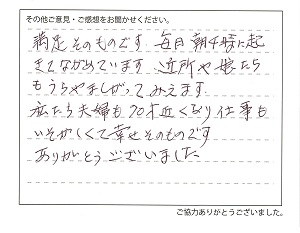 その他ご意見・ご感想をお聞かせください。
満足そのものです 毎日朝4時に起
きてながめています 近所や娘たち
もうらやましがってみえます
私たち夫婦も70才近くなり仕事も
いそがしくて幸せそのものです
ありがとうございました
ご協力ありがとうございました。